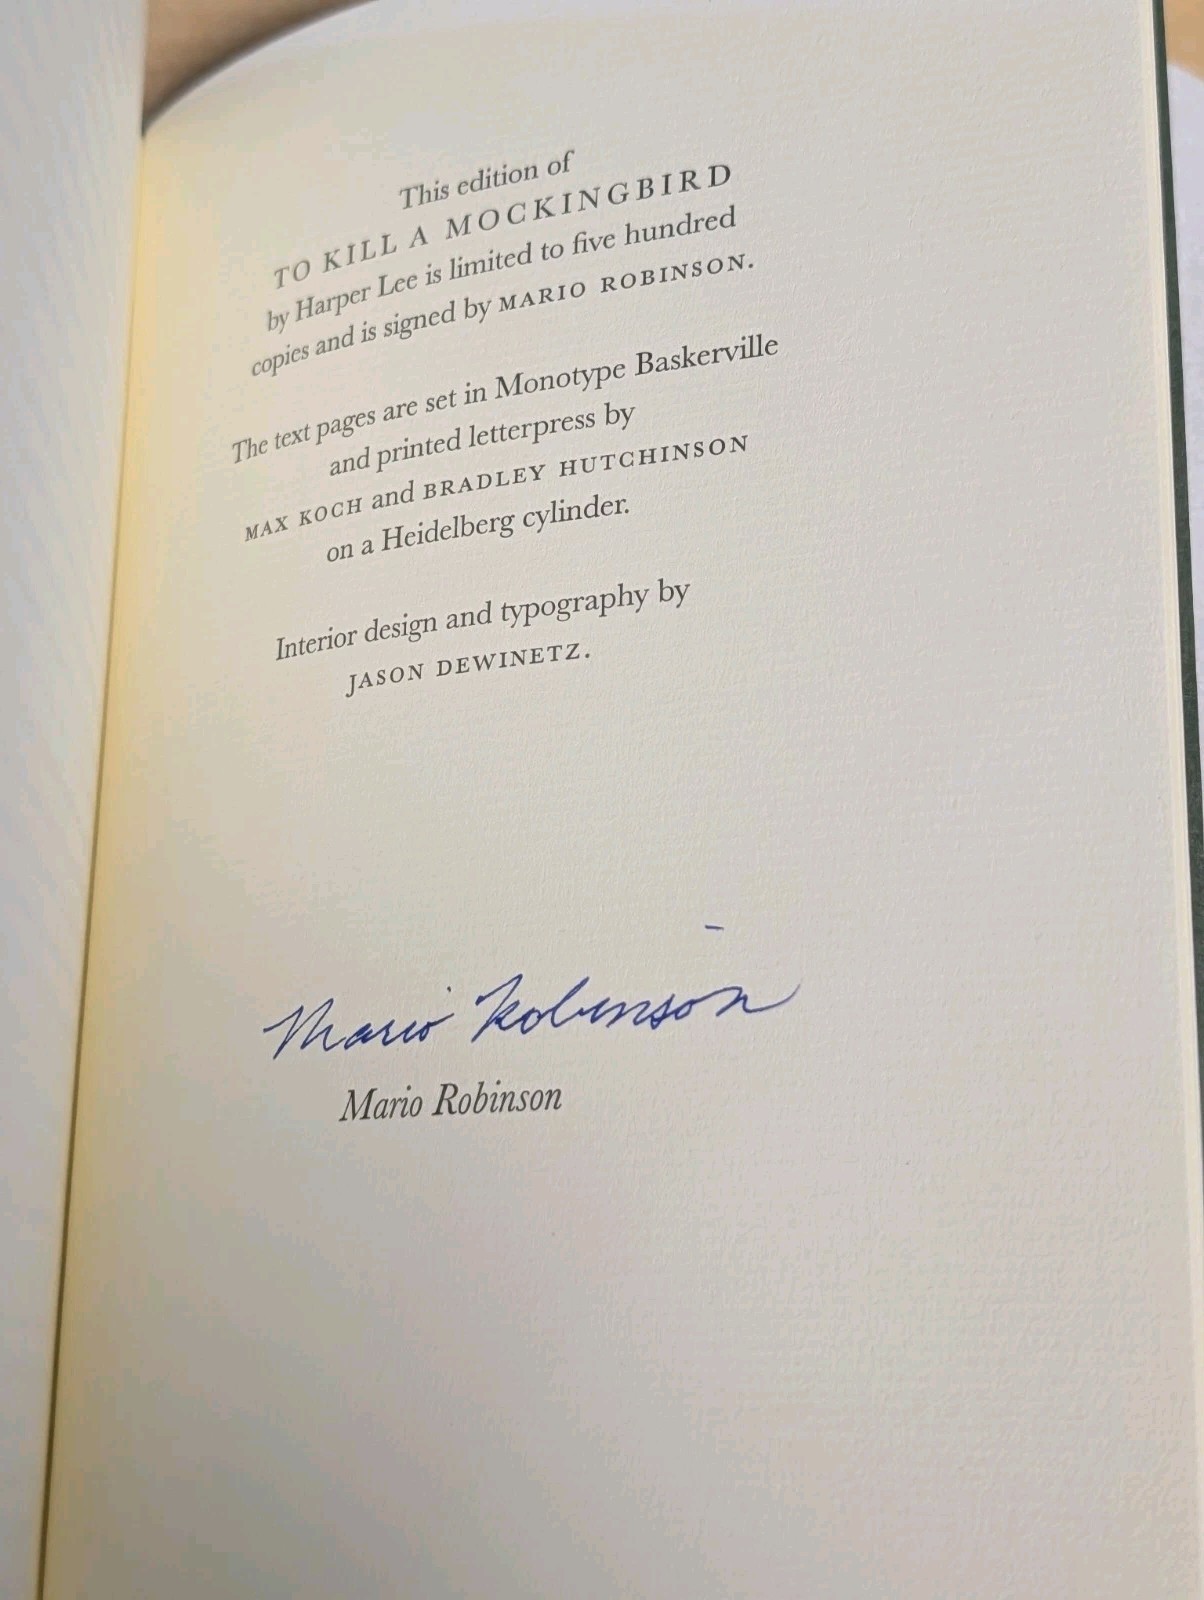 This edition of
TO KILL A MOCKINGBIRD
by Harper Lee is limited to five hundred
copies and is signed by MARIO ROBINSON.
The text pages are set in Monotype Baskerville
and printed letterpress by
MAX KOCH and BRADLEY HUTCHINSON
on a Heidelberg cylinder.
Interior design and typography by
JASON DEWINETZ.
Mario Robinson
Mario Robinson